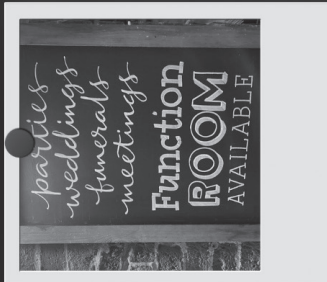 parties
weddings
funerals
meetings
Function
ROOM
AVAILABLE